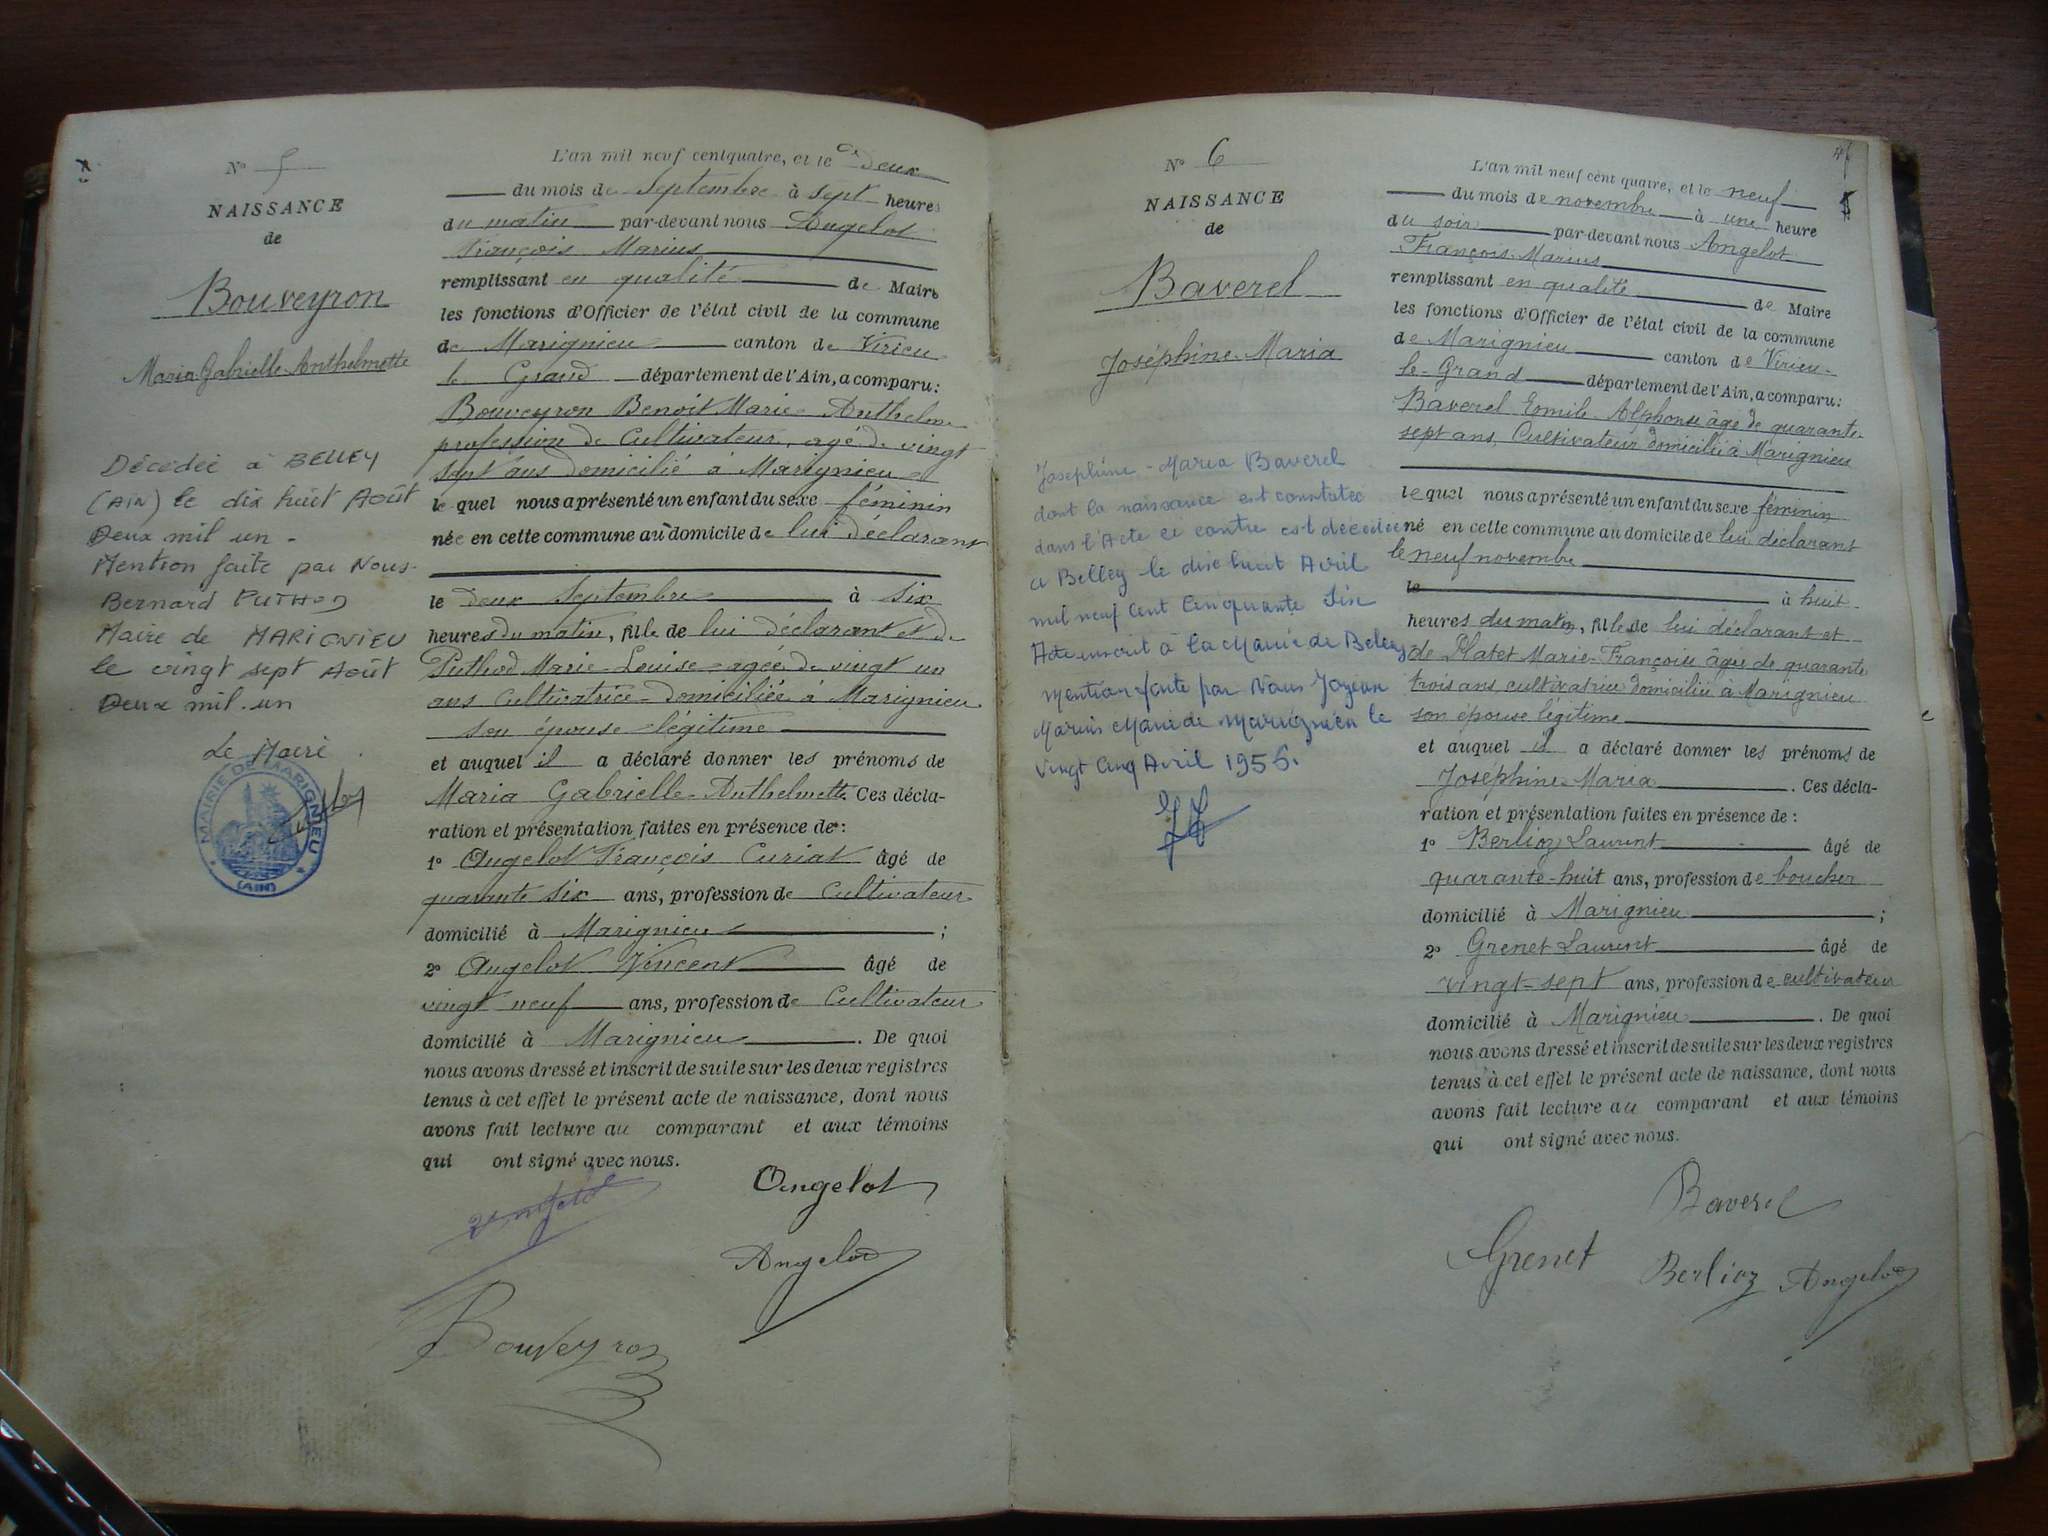 N° 5
NAISSANCE
de
Bouveyron
Maria Gabrielle Anthelmette
Décédée à BELLEY
(AIN) le dix huit Août
Deux mil un -
Mention faite par Nous
Bernard PUTHOD
Maire de MARIGNIEU
le vingt sept Août
Deux mil un
Le Maire
MAIRIE DE MARIGNIEU
(AIN)
L'an mil neuf cent quatre, et le deux
du mois de Septembre à sept heures
du matin par-devant nous Angelot
François Marius
remplissant en qualité de Maire
les fonctions d'Officier de l'état civil de la commune
de Marignieu canton de Virieu
le Grand département de l'Ain, a comparu:
Bouveyron Benoit Marie Anthelme
profession de Cultivateur, agé de vingt
sept ans domicilié à Marignieu
le quel nous a présenté un enfant du sexe féminin
née en cette commune au domicile de lui déclarant
le deux Septembre à six
heures du matin, fille de lui déclarant et de
Puthod Marie-Louise agée de vingt un
ans Cultivatrice domiciliée à Marignieu
son épouse légitime
et auquel il a déclaré donner les prénoms de
Maria Gabrielle Anthelmette. Ces décla-
ration et présentation faites en présence de :
1° Angelot François Curiat âgé de
quarante six ans, profession de Cultivateur
domicilié à Marignieu ;
2° Angelot Vincent âgé de
vingt neuf ans, profession de Cultivateur
domicilié à Marignieu . De quoi
nous avons dressé et inscrit de suite sur les deux registres
tenus à cet effet le présent acte de naissance, dont nous
avons fait lecture au comparant et aux témoins
qui ont signé avec nous.
Angelot
Angelot
Bouveyron
N° 6
NAISSANCE
de
Baverel
Joséphine Maria
Josephine - Maria Baverel
dont la naissance est constatée
dans l'Acte ci contre est décédée
a Belley le dix huit Avril
mil neuf Cent Cinquante Six
Acte inscrit à la Mairie de Belley
Mention faite par Nous
Marius Maire de Marignieu le
Vingt Cinq Avril 1956.
L'an mil neuf cent quatre, et le neuf
du mois de novembre à une heure
du soir par-devant nous Angelot
François Marius
remplissant en qualité de Maire
les fonctions d'Officier de l'état civil de la commune
de Marignieu canton de Virieu-
le-Grand département de l'Ain, a comparu:
Baverel Emile Alphonse âgé de quarante-
sept ans, Cultivateur domicilié à Marignieu
le quel nous a présenté un enfant du sexe féminin
né en cette commune au domicile de lui déclarant
le neuf novembre
le à huit
heures du matin, fille de lui déclarant et
de Platet Marie-Françoise âgée de quarante
trois ans, cultivatrice domiciliée à Marignieu
son épouse légitime
et auquel il a déclaré donner les prénoms de
Joséphine-Maria . Ces décla-
ration et présentation faites en présence de :
1° Berlioz Laurent âgé de
quarante-huit ans, profession de boucher
domicilié à Marignieu ;
2° Grenet Laurent âgé de
vingt-sept ans, profession de cultivateur
domicilié à Marignieu . De quoi
nous avons dressé et inscrit de suite sur les deux registres
tenus à cet effet le présent acte de naissance, dont nous
avons fait lecture au comparant et aux témoins
qui ont signé avec nous.
Baverel
Grenet Berlioz Angelot